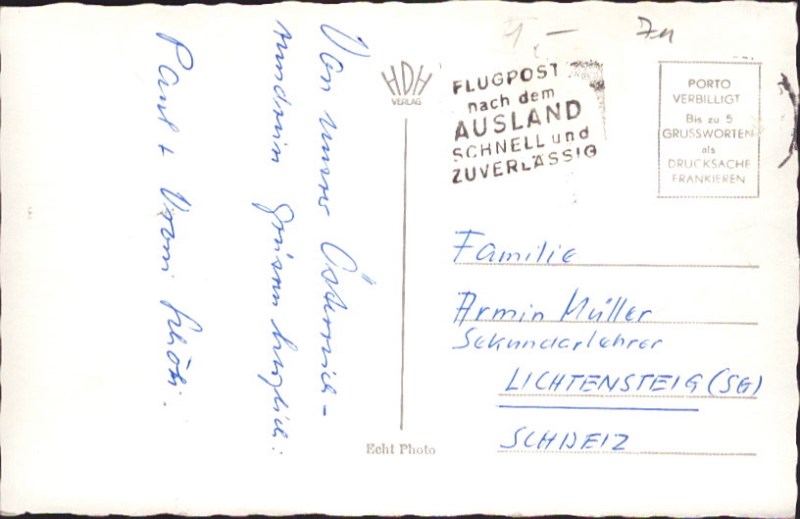 Von unserer Österreich-
rundreise grüssen herzlich:
Paul + Vroni
HDH
VERLAG
FLUGPOST
nach dem
AUSLAND
SCHNELL und
ZUVERLÄSSIG
PORTO
VERBILLIGT
Bis zu 5
GRUSSWORTEN
als
DRUCKSACHE
FRANKIEREN
Familie
Armin Müller
Sekundarlehrer
LICHTENSTEIG (SG)
SCHWEIZ
Echt Photo